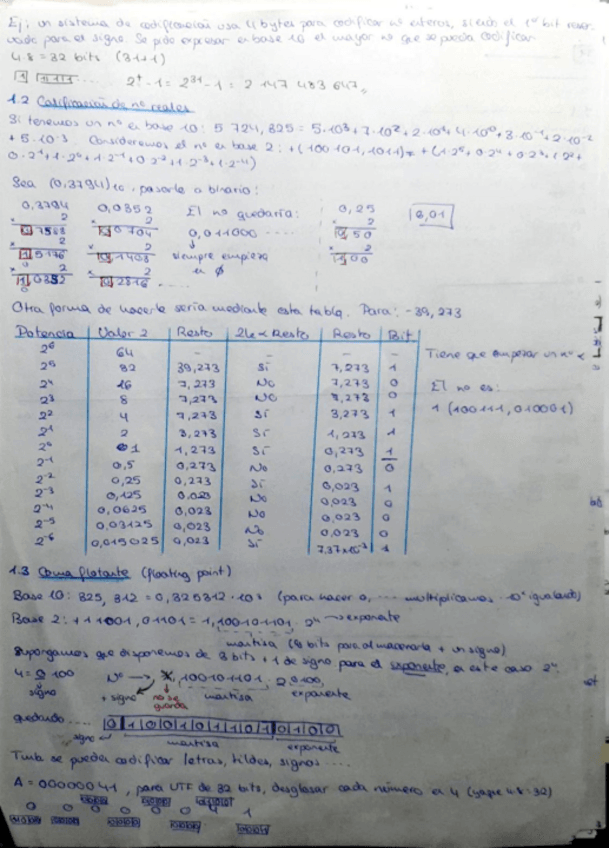 Ej: un sistema de codificación usa 4 bytes para codificar nº enteros, siendo el 1er bit reser-
vado para el signo. Se pide expresar en base 10 el mayor nº que se pueda codificar.
4·8 = 32 bits (31+1)
2³¹-1 = 2 147 483 647
1.2 Codificación de nº reales
Si tenemos un nº en base 10: 5 724, 825 = 5·10³+7·10²+2·10¹+4·10⁰+8·10⁻¹+2·10⁻²
+ 5·10⁻³. Consideremos el nº en base 2: +(100101,1011)₂ = +(1·2⁵+0·2⁴+0·2³+1·2²+
0·2¹+1·2⁰+1·2⁻¹+0·2⁻²+1·2⁻³+1·2⁻⁴)
Sea (0,3794)₁₀, pasarlo a binario:
0,3794 0,0352 El nº quedaría: 0,25 0,01
x 2 x 2 0,011000 ---- x 2
0 7588 0 0704 0 50
x 2 x 2 siempre empieza x 2
1 5176 0 1408 en 0 1 00
x 2 x 2
1 0352 0 2816 ....
Otra forma de hacerlo sería mediante esta tabla. Para: -39,273
Potencia Valor 2 Resto 2ᴷ < Resto Resto Bit
2⁶ 64 - - - -
2⁵ 32 39,273 Sí 7,273 1
2⁴ 16 7,273 No 7,273 0
2³ 8 7,273 No 7,273 0
2² 4 7,273 Sí 3,273 1
2¹ 2 3,273 Sí 1,273 1
2⁰ 1 1,273 Sí 0,273 1
2⁻¹ 0,5 0,273 No 0,273 0
2⁻² 0,25 0,273 Sí 0,023 1
2⁻³ 0,125 0,023 No 0,023 0
2⁻⁴ 0,0625 0,023 No 0,023 0
2⁻⁵ 0,03125 0,023 No 0,023 0
2⁻⁶ 0,015625 0,023 Sí 7,37×10⁻³ 1
Tiene que empezar un nº <
El nº es:
1 (100111,010001)
1.3 Coma flotante (floating point)
Base 10: 825, 312 = 0,825312·10³ (para hacer 0, ---- multiplicamos ·10ⁿ igualando)
Base 2: +11001,01101 = 1,100101101·2⁴ → exponente
mantisa (8 bits para almacenarla + un signo)
Supongamos que disponemos de 3 bits + 1 de signo para el exponente, en este caso 2⁴.
4 = 0 100 Nº → 1,100101101, 2 0100
signo + signo no se guarda mantisa exponente
quedando ..... 0 1 0 0 1 0 1 1 0 1 0 1 0 0
signo mantisa exponente
Tmb se pueden codificar letras, tildes, signos ....
A = 00000041, para UTF de 32 bits, desglosar cada número en 4 (ya que 4·8=32)
0 0 0 0 0 0 4 1
0000 0000 0000 0000 0000 0000 0100 0001